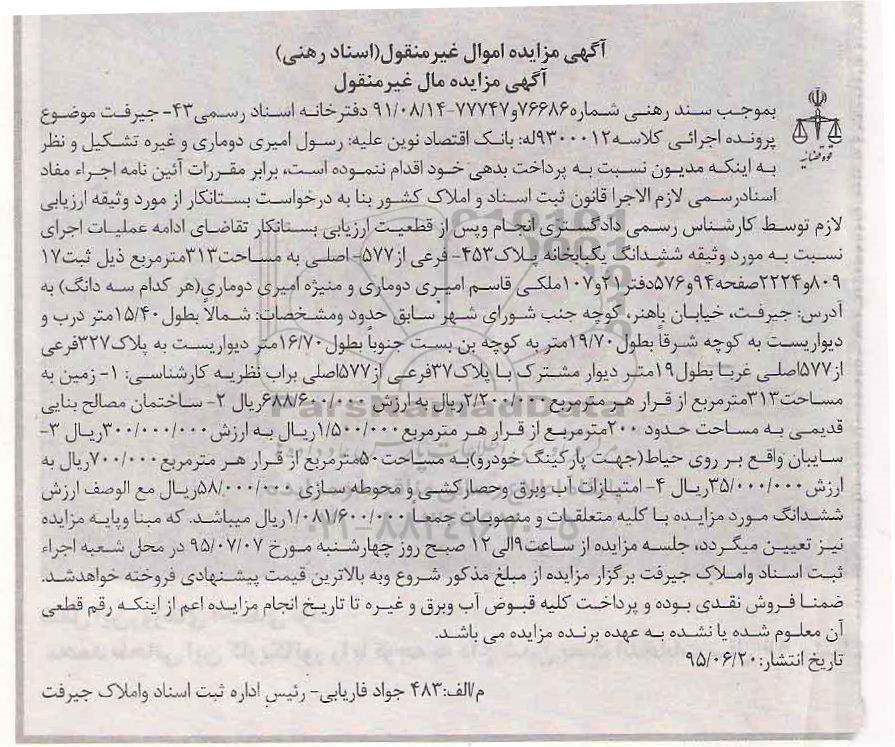 آگهی مزایده اموال غیرمنقول(اسناد رهنی)
آگهی مزایده مال غیرمنقول
بموجب سند رهنی شماره۷۶۶۸۶و۷۷۷۴۷-۹۱/۰۸/۱۴ دفترخانه اسناد رسمی۴۳- جیرفت موضوع
پرونده اجرائی کلاسه۹۳۰۰۰۱۲له: بانک اقتصاد نوین علیه: رسول امیری دوماری و غیره تشکیل و نظر
به اینکه مدیون نسبت به پرداخت بدهی خود اقدام ننموده است، برابر مقررات آئین نامه اجراء مفاد
اسنادرسمی لازم الاجرا قانون ثبت اسناد و املاک کشور بنا به درخواست بستانکار از مورد وثیقه ارزیابی
لازم توسط کارشناس رسمی دادگستری انجام وپس از قطعیت ارزیابی بستانکار تقاضای ادامه عملیات اجرای
نسبت به مورد وثیقه ششدانگ یکبابخانه پلاک۴۵۳- فرعی از۵۷۷- اصلی به مساحت۳۱۳مترمربع ذیل ثبت۱۷
۸۰۹و۲۲۲۴صفحه۹۴و۵۷۶دفتر۲۱و۱۰۷ملکی قاسم امیری دوماری و منیژه امیری دوماری(هر کدام سه دانگ) به
آدرس: جیرفت، خیابان باهنر، کوچه جنب شورای شهر سابق حدود ومشخصات: شمالاً بطول۱۵/۴۰متر درب و
دیواریست به کوچه شرقاً بطول۱۹/۷۰متر به کوچه بن بست جنوباً بطول۱۶/۷۰متر دیواریست به پلاک۳۲۷فرعی
از۵۷۷اصلی غربا بطول۱۹متر دیوار مشترک با پلاک۳۷فرعی از۵۷۷اصلی براب نظریه کارشناسی: ۱- زمین به
مساحت۳۱۳مترمربع از قرار هر مترمربع۲/۲۰۰/۰۰۰ریال به ارزش ۶۸۸/۶۰۰/۰۰۰ریال ۲- ساختمان مصالح بنایی
قدیمی به مساحت حدود ۲۰۰مترمربع از قرار هر مترمربع۱/۵۰۰/۰۰۰ریال به ارزش۳۰۰/۰۰۰/۰۰۰ریال ۳-
سایبان واقع بر روی حیاط(جهت پارکینگ خودرو)به مساحت۵۰مترمربع از قرار هر مترمربع۷۰۰/۰۰۰ریال به
ارزش ۳۵/۰۰۰/۰۰۰ریال ۴- امتیازات آب وبرق وحصارکشی و محوطه سازی ۵۸/۰۰۰/۰۰۰ریال مع الوصف ارزش
ششدانگ مورد مزایده با کلیه متعلقات و منصوبات جمعا ۱/۰۸۱/۶۰۰/۰۰۰ریال میباشد. که مبنا وپایه مزایده
نیز تعیین میگردد، جلسه مزایده از ساعت۹الی۱۲ صبح روز چهارشنبه مورخ ۹۵/۰۷/۰۷ در محل شعبه اجراء
ثبت اسناد واملاک جیرفت برگزار مزایده از مبلغ مذکور شروع وبه بالاترین قیمت پیشنهادی فروخته خواهدشد.
ضمنا فروش نقدی بوده و پرداخت کلیه قبوض آب وبرق و غیره تا تاریخ انجام مزایده اعم از اینکه رقم قطعی
آن معلوم شده یا نشده به عهده برنده مزایده می باشد.
تاریخ انتشار: ۹۵/۰۶/۲۰
م/الف: ۴۸۳ جواد فاریابی- رئیس اداره ثبت اسناد واملاک جیرفت
قوه قضائیه
ParsNamadData